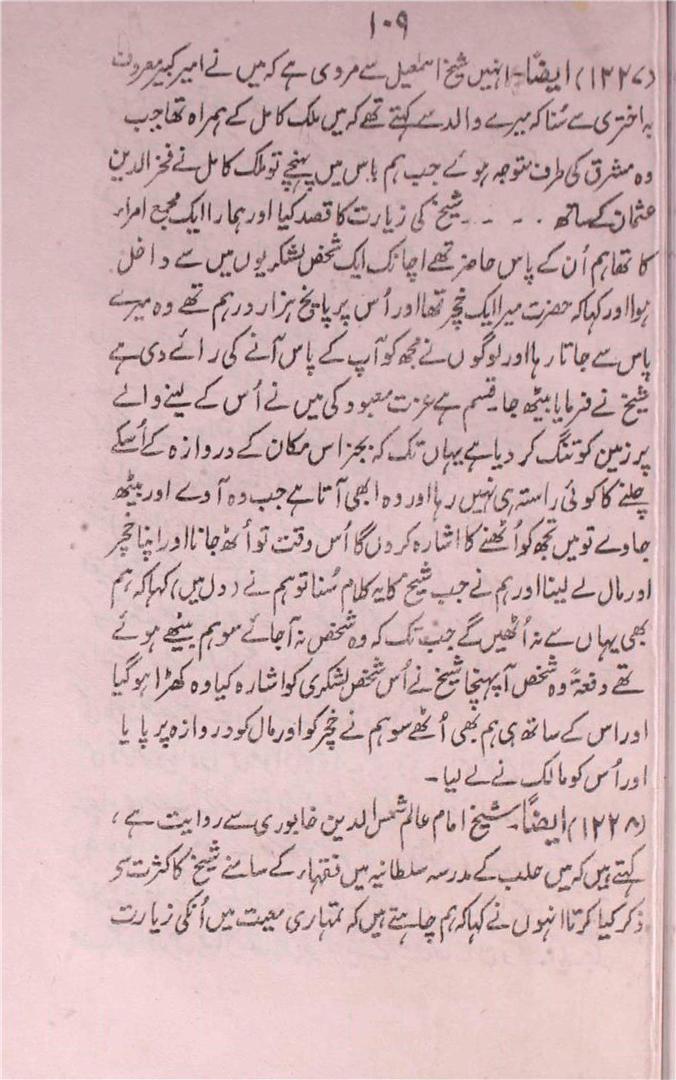 ۱۰۹
(۱۲۲۷) ایضًا۔ انہیں شیخ اسمٰعیل سے مروی ہے کہ میں نے امیر کبیر معروف
بہ اختری سے سُنا کہ میرے والد سے کہتے تھے کہ میں ملک کامل کے ہمراہ تھا جب
وہ مشرق کی طرف متوجہ ہوئے جب ہم باس میں پہنچے تو ملک کامل نے فخر الدین
عثمان کے ساتھ ۔ ۔ ۔ ۔ شیخ کی زیارت کا قصد کیا اور ہمارا ایک مجمع امراء
کا تھا ہم اُن کے پاس حاضر تھے اچانک ایک شخص لشکریوں میں سے داخل
ہوا اور کہا کہ حضرت میرا ایک خچر تھا اور اُس پر پانچ ہزار درہم تھے وہ میرے
پاس سے جاتا رہا اور لوگوں نے مجھ کو آپ کے پاس آنے کی رائے دی ہے
شیخ نے فرمایا بیٹھ جا۔ قسم ہے عزت معبود کی میں نے اُس کے لینے والے
پر زمین کو تنگ کر دیا ہے یہاں تک کہ بجز اس مکان کے دروازہ کے اُسکے
چلنے کا کوئی راستہ ہی نہیں رہا اور وہ ابھی آتا ہے جب وہ آوے اور بیٹھ
جاوے تو میں تجھ کو اُٹھنے کا اشارہ کردوں گا اُس وقت تو اُٹھ جانا اور اپنا خچر
اور مال لے لینا اور ہم نے جب شیخ کا یہ کلام سُنا تو ہم نے (دل میں) کہا کہ ہم
بھی یہاں سے نہ اُٹھیں گے جب تک کہ وہ شخص نہ آجائے سو ہم بیٹھے ہوئے
تھے دفعۃً وہ شخص آ پہنچا شیخ نے اُس شخص لشکری کو اشارہ کیا وہ کھڑا ہوگیا
اور اس کے ساتھ ہی ہم بھی اُٹھے سو ہم نے خچر کو اور مال کو دروازہ پر پایا
اور اُس کو مالک نے لے لیا۔
(۱۲۲۸) ایضًا۔ شیخ امام عالم شمس الدین خابوری سے روایت ہے،
کہتے ہیں کہ میں حلب کے مدرسہ سلطانیہ میں فقہاء کے سامنے شیخ کا کثرت سے
ذکر کیا کرتا انہوں نے کہا کہ ہم چاہتے ہیں کہ تمہاری معیت میں اُنکی زیارت